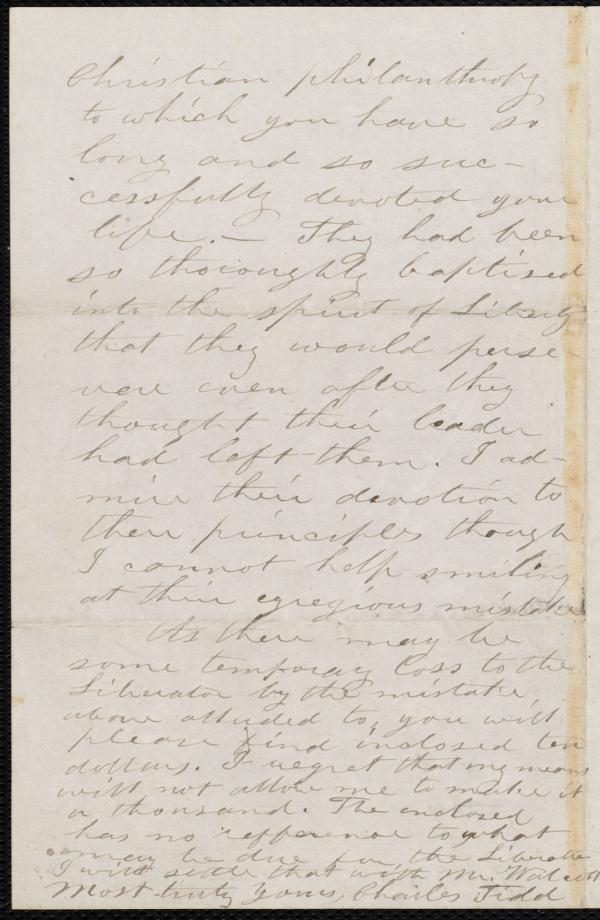 Christian philanthropy
to which you have so
long and so suc-
cessfully devoted your
life. — They had been
so thoroughly baptised
into the spirit of Liberty
that they would perse
vere even after they
thought their leader
had left them. I ad-
mire their devotion to
their principles though
I cannot help smiling
at their egregious mistake
As there may be
some temporary loss to the
Liberator by the mistake
above alluded to, you will
please find inclosed ten
dollars. I regret that my means
will not allow me to make it
a thousand. The enclosed
has no refference to what
may be due for the Liberator
I will settle that with Mr. Walcott
Most truly Yours, Charles Tidd